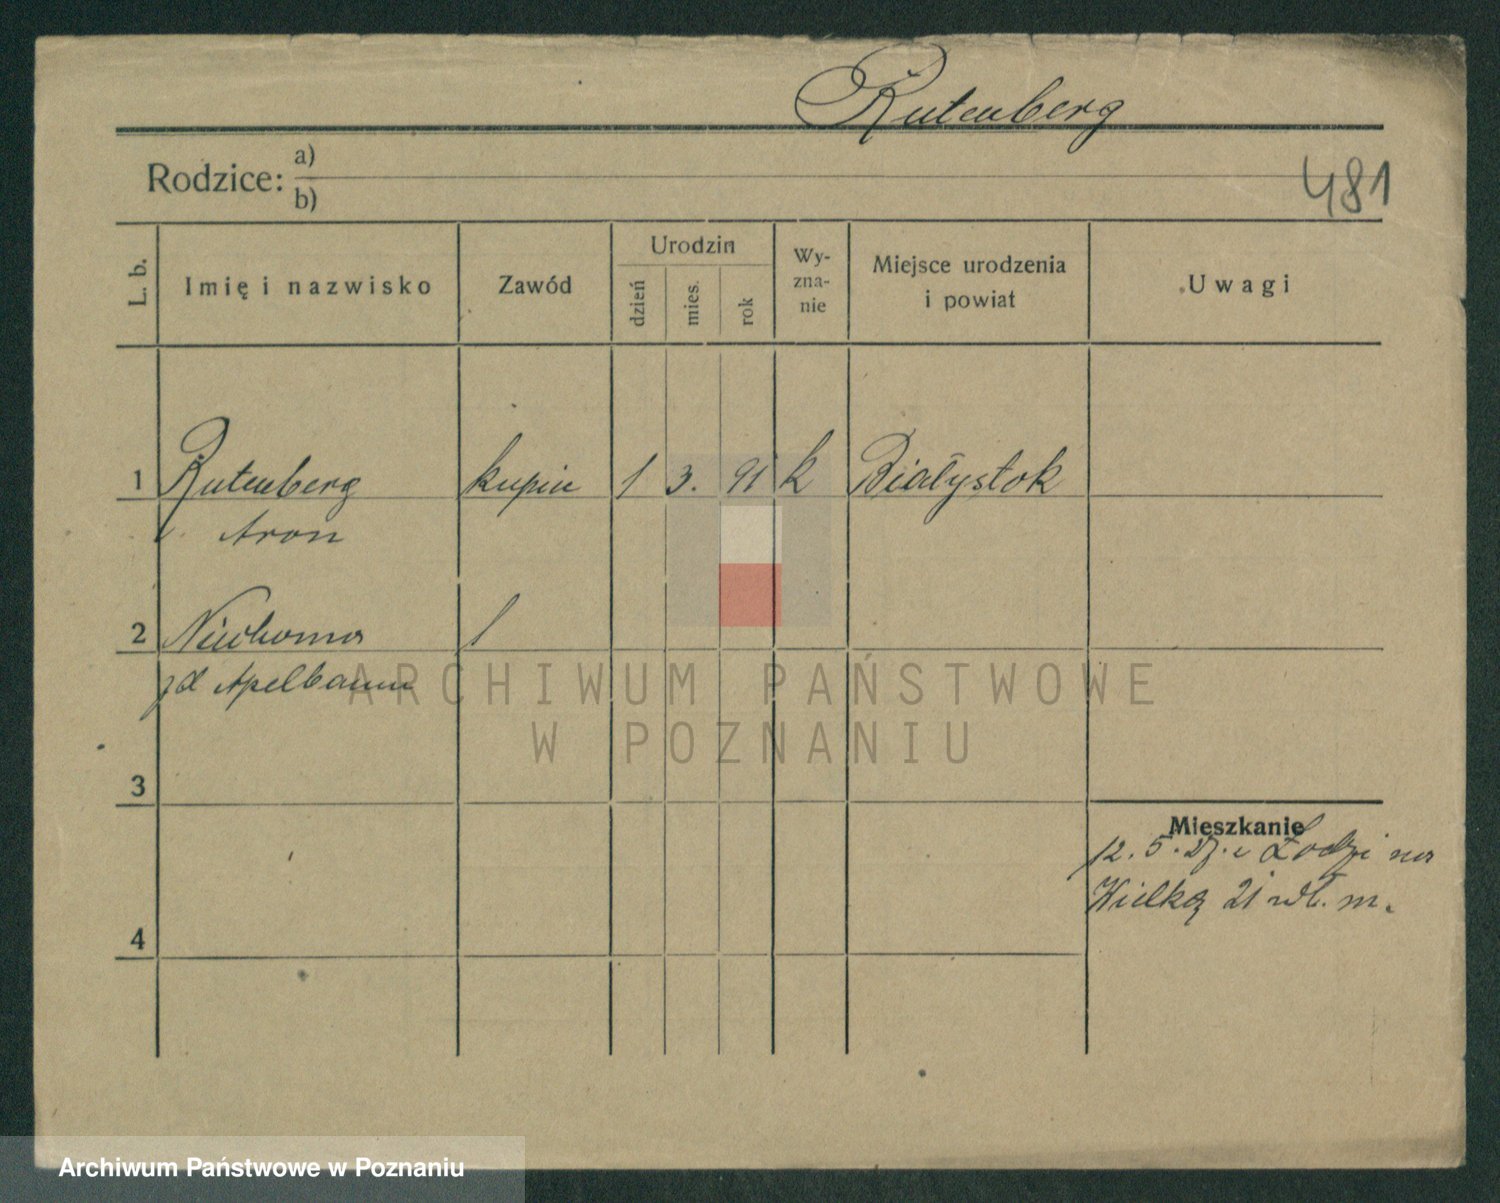 Rutenberg
Rodzice: a)
b)
481
L. b.
Imię i nazwisko
Zawód
Urodzin
dzień
mies.
rok
Wy-
zna-
nie
Miejsce urodzenia
i powiat
Uwagi
1 Rutenberg kupiec 1 3. 91 k Białystok
Aron
2
zd Apelbaum
3
Mieszkanie
12. 5. z Łodzi na
Wielką 21 m.
4
ARCHIWUM PAŃSTWOWE
W POZNANIU
Archiwum Państwowe w Poznaniu